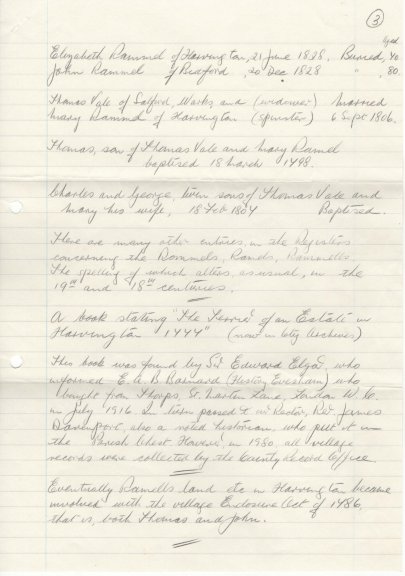 3
aged
Elizabeth Rammel of Harvington, 21 June 1828, Buried, 40
John Rammel of Bidford, 20 Dec 1828 " , 80.
Thomas Vale of Salford, Warks, and (widower) Married
Mary Rammel of Harvington (spinster) 6 Sept 1806.
Thomas, son of Thomas Vale and Mary Ramel
baptised 18 March 1798.
Charles and George, twin sons of Thomas Vale and
Mary his wife, 18 Feb 1807 Baptised.
There are many other entries in the Registers
concerning the Rommels, Ramels, Rammells.
The spelling of which alters, as usual, in the
19th and 18th centuries.
A book stating "The Terrier of an Estate in
Harvington 1777" (now in City Archives)
This book was found by Sir Edward Elgar, who
informed E. A. B Barnard (History Evesham) who
bought from Thorps, St. Martin Lane, London W.C.
in July 1916. In turn passed to Rector, Rev James
Davenport, also a noted historian, who put it in
the Parish Chest. However in 1980, all village
records were collected by the County Record Office
Eventually Ramells land etc in Harvington became
involved with the village Enclosure Act of 1786,
that is, both Thomas and John.